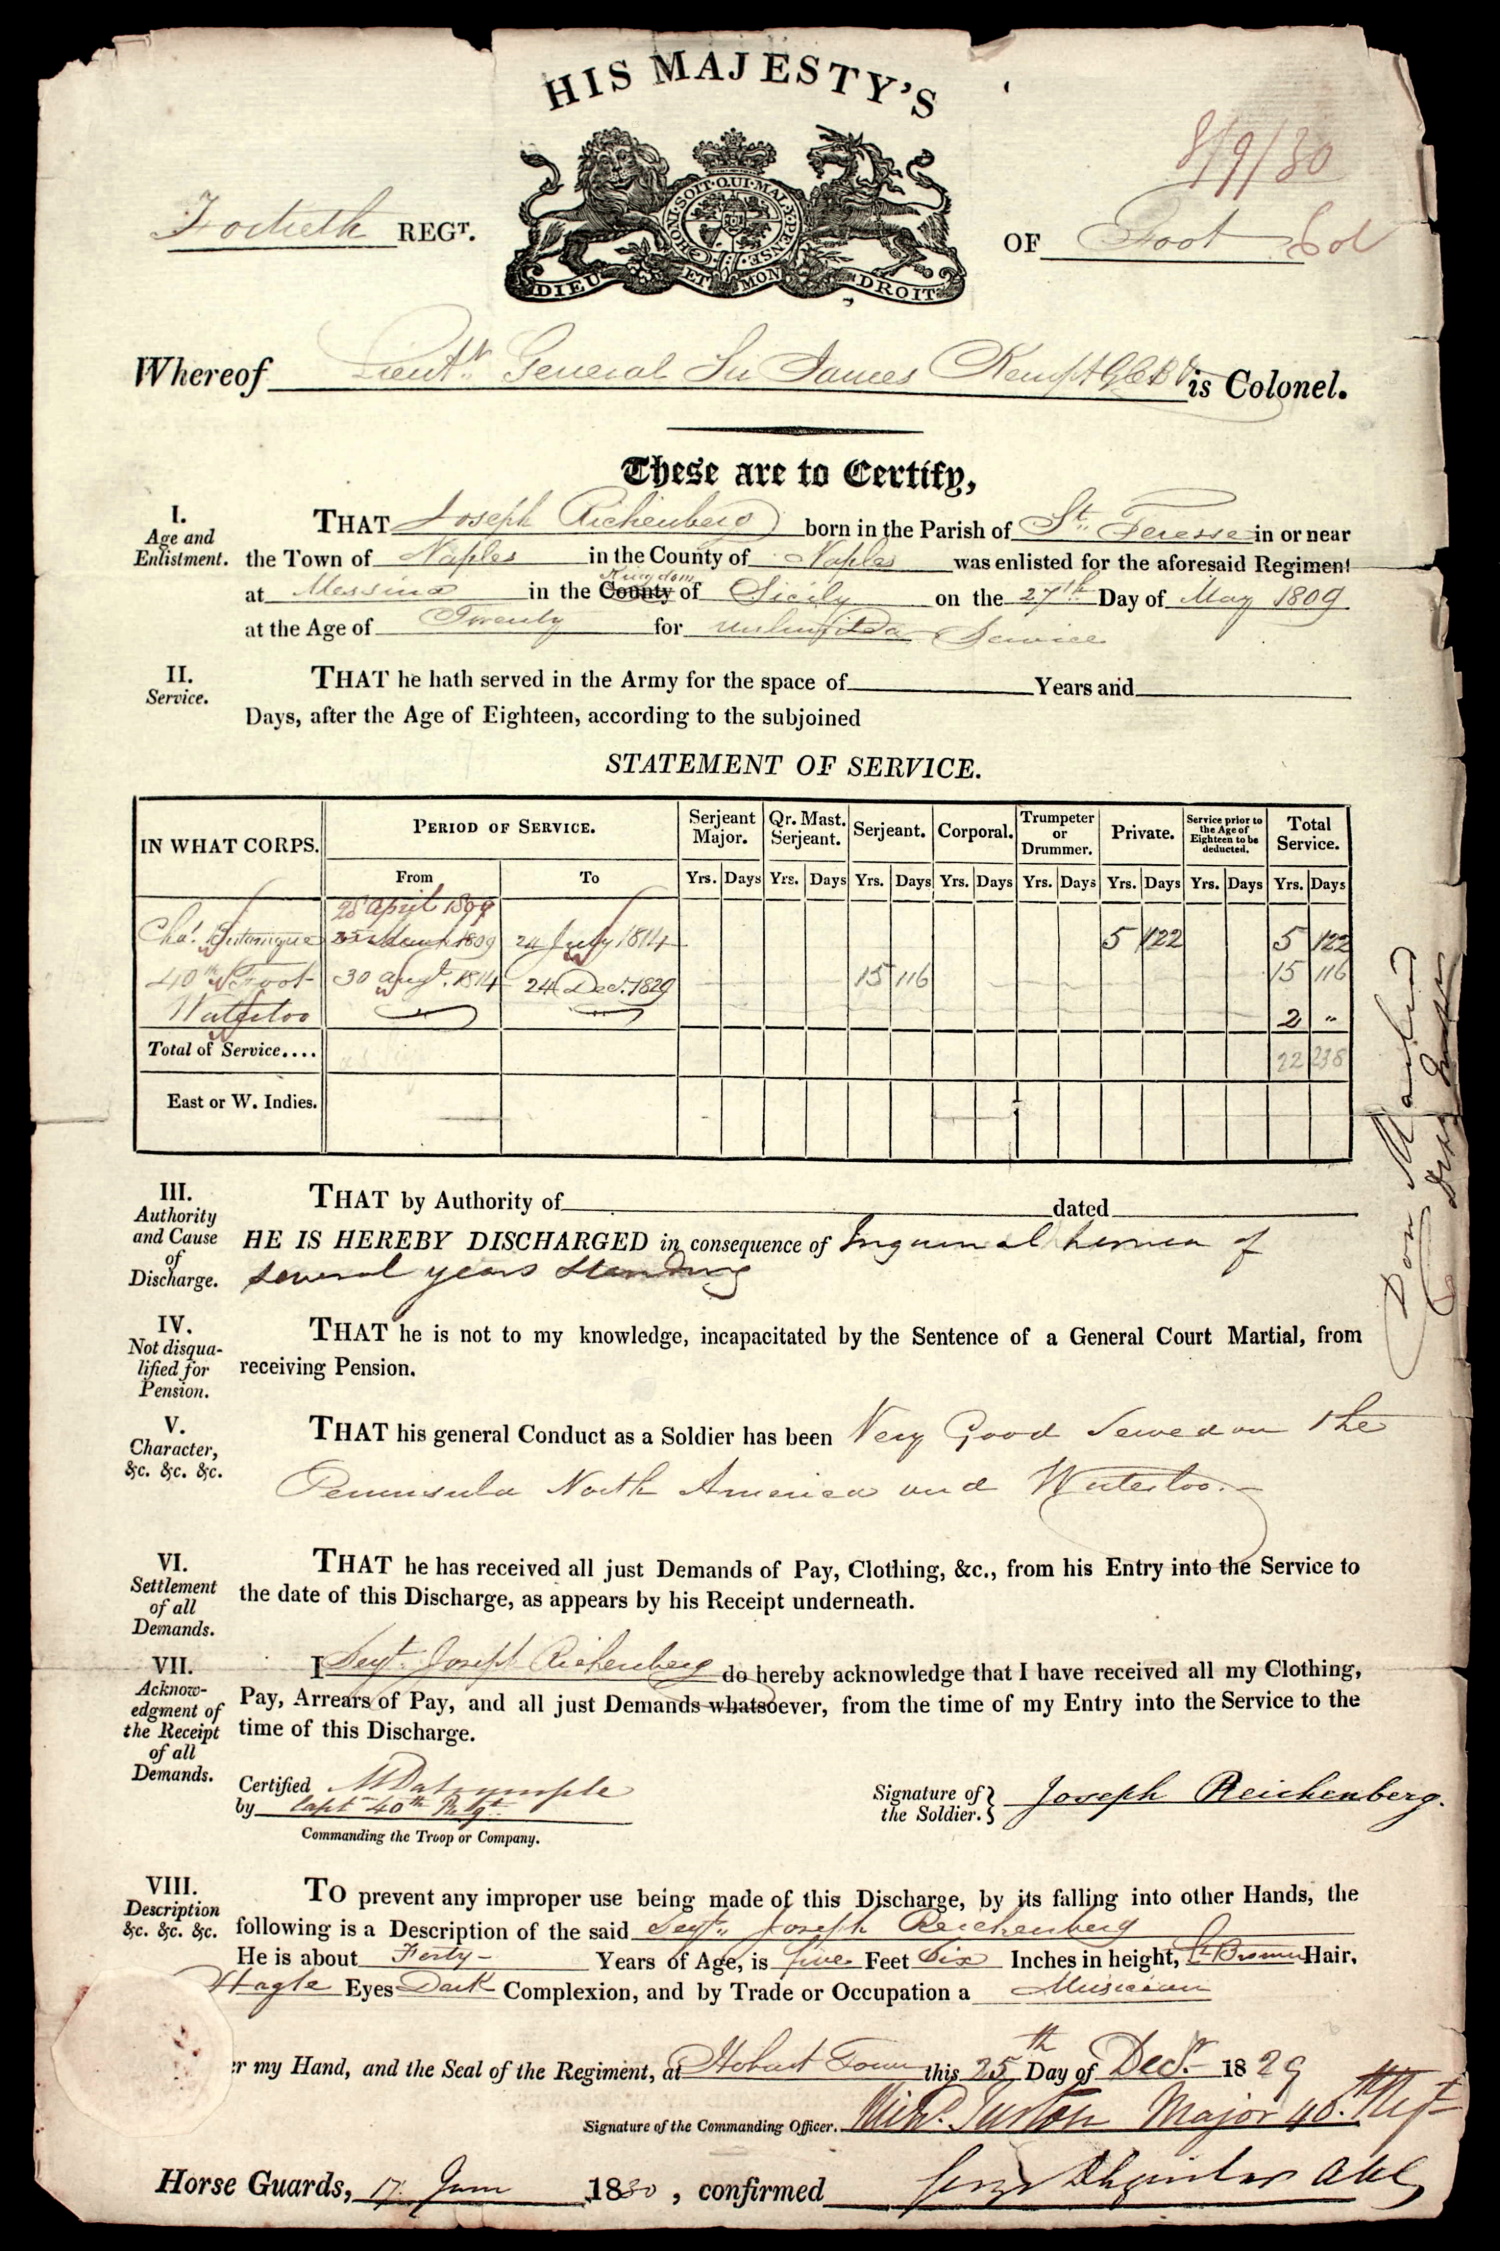 HIS MAJESTY'S
8/9/30
HONI·SOIT·QUI·MAL·Y·PENSE
DIEU ET MON DROIT
Fortieth REGT. OF Foot
Whereof Lieutt. General Sir James Kempt GCB is Colonel.
These are to Certify,
I. Age and Enlistment.
THAT Joseph Richenberg born in the Parish of St. Teresse in or near
the Town of Naples in the County of Naples was enlisted for the aforesaid Regiment
at Messina in the County Kingdom of Sicily on the 27th Day of May 1809
at the Age of Twenty for unlimited Service
II. Service.
THAT he hath served in the Army for the space of Years and
Days, after the Age of Eighteen, according to the subjoined
STATEMENT OF SERVICE.
IN WHAT CORPS. PERIOD OF SERVICE. Serjeant Major. Qr. Mast. Serjeant. Serjeant. Corporal. Trumpeter or Drummer. Private. Service prior to the Age of Eighteen to be deducted. Total Service.
From To Yrs. Days Yrs. Days Yrs. Days Yrs. Days Yrs. Days Yrs. Days Yrs. Days Yrs. Days
28 April 1809
25 March 1809 24 July 1814 5 122 5 122
40th Foot 30 Augt. 1814 24 Decr. 1829 15 116 15 116
Waterloo 2 "
Total of Service.... 22 238
East or W. Indies.
III. Authority and Cause of Discharge.
THAT by Authority of dated
HE IS HEREBY DISCHARGED in consequence of Inguinal hernia of
several years standing
IV. Not disqualified for Pension.
THAT he is not to my knowledge, incapacitated by the Sentence of a General Court Martial, from
receiving Pension.
V. Character, &c. &c. &c.
THAT his general Conduct as a Soldier has been Very Good Served in the
Peninsula North America and Waterloo.
VI. Settlement of all Demands.
THAT he has received all just Demands of Pay, Clothing, &c., from his Entry into the Service to
the date of this Discharge, as appears by his Receipt underneath.
VII. Acknowledgment of the Receipt of all Demands.
I Serjt. Joseph Richenberg do hereby acknowledge that I have received all my Clothing,
Pay, Arrears of Pay, and all just Demands whatsoever, from the time of my Entry into the Service to the
time of this Discharge.
Certified by M Dalrymple
Capt 40th Regt.
Commanding the Troop or Company.
Signature of the Soldier. Joseph Reichenberg.
VIII. Description &c. &c. &c.
TO prevent any improper use being made of this Discharge, by its falling into other Hands, the
following is a Description of the said Serjt. Joseph Reichenberg
He is about Forty Years of Age, is five Feet Six Inches in height, Lt Brown Hair,
Hagle Eyes Dark Complexion, and by Trade or Occupation a Musician
er my Hand, and the Seal of the Regiment, at Hobart Town this 25th Day of Decr. 1829
Signature of the Commanding Officer. Richd. Turton Major 40th Regt
Horse Guards, 17 June 1830, confirmed